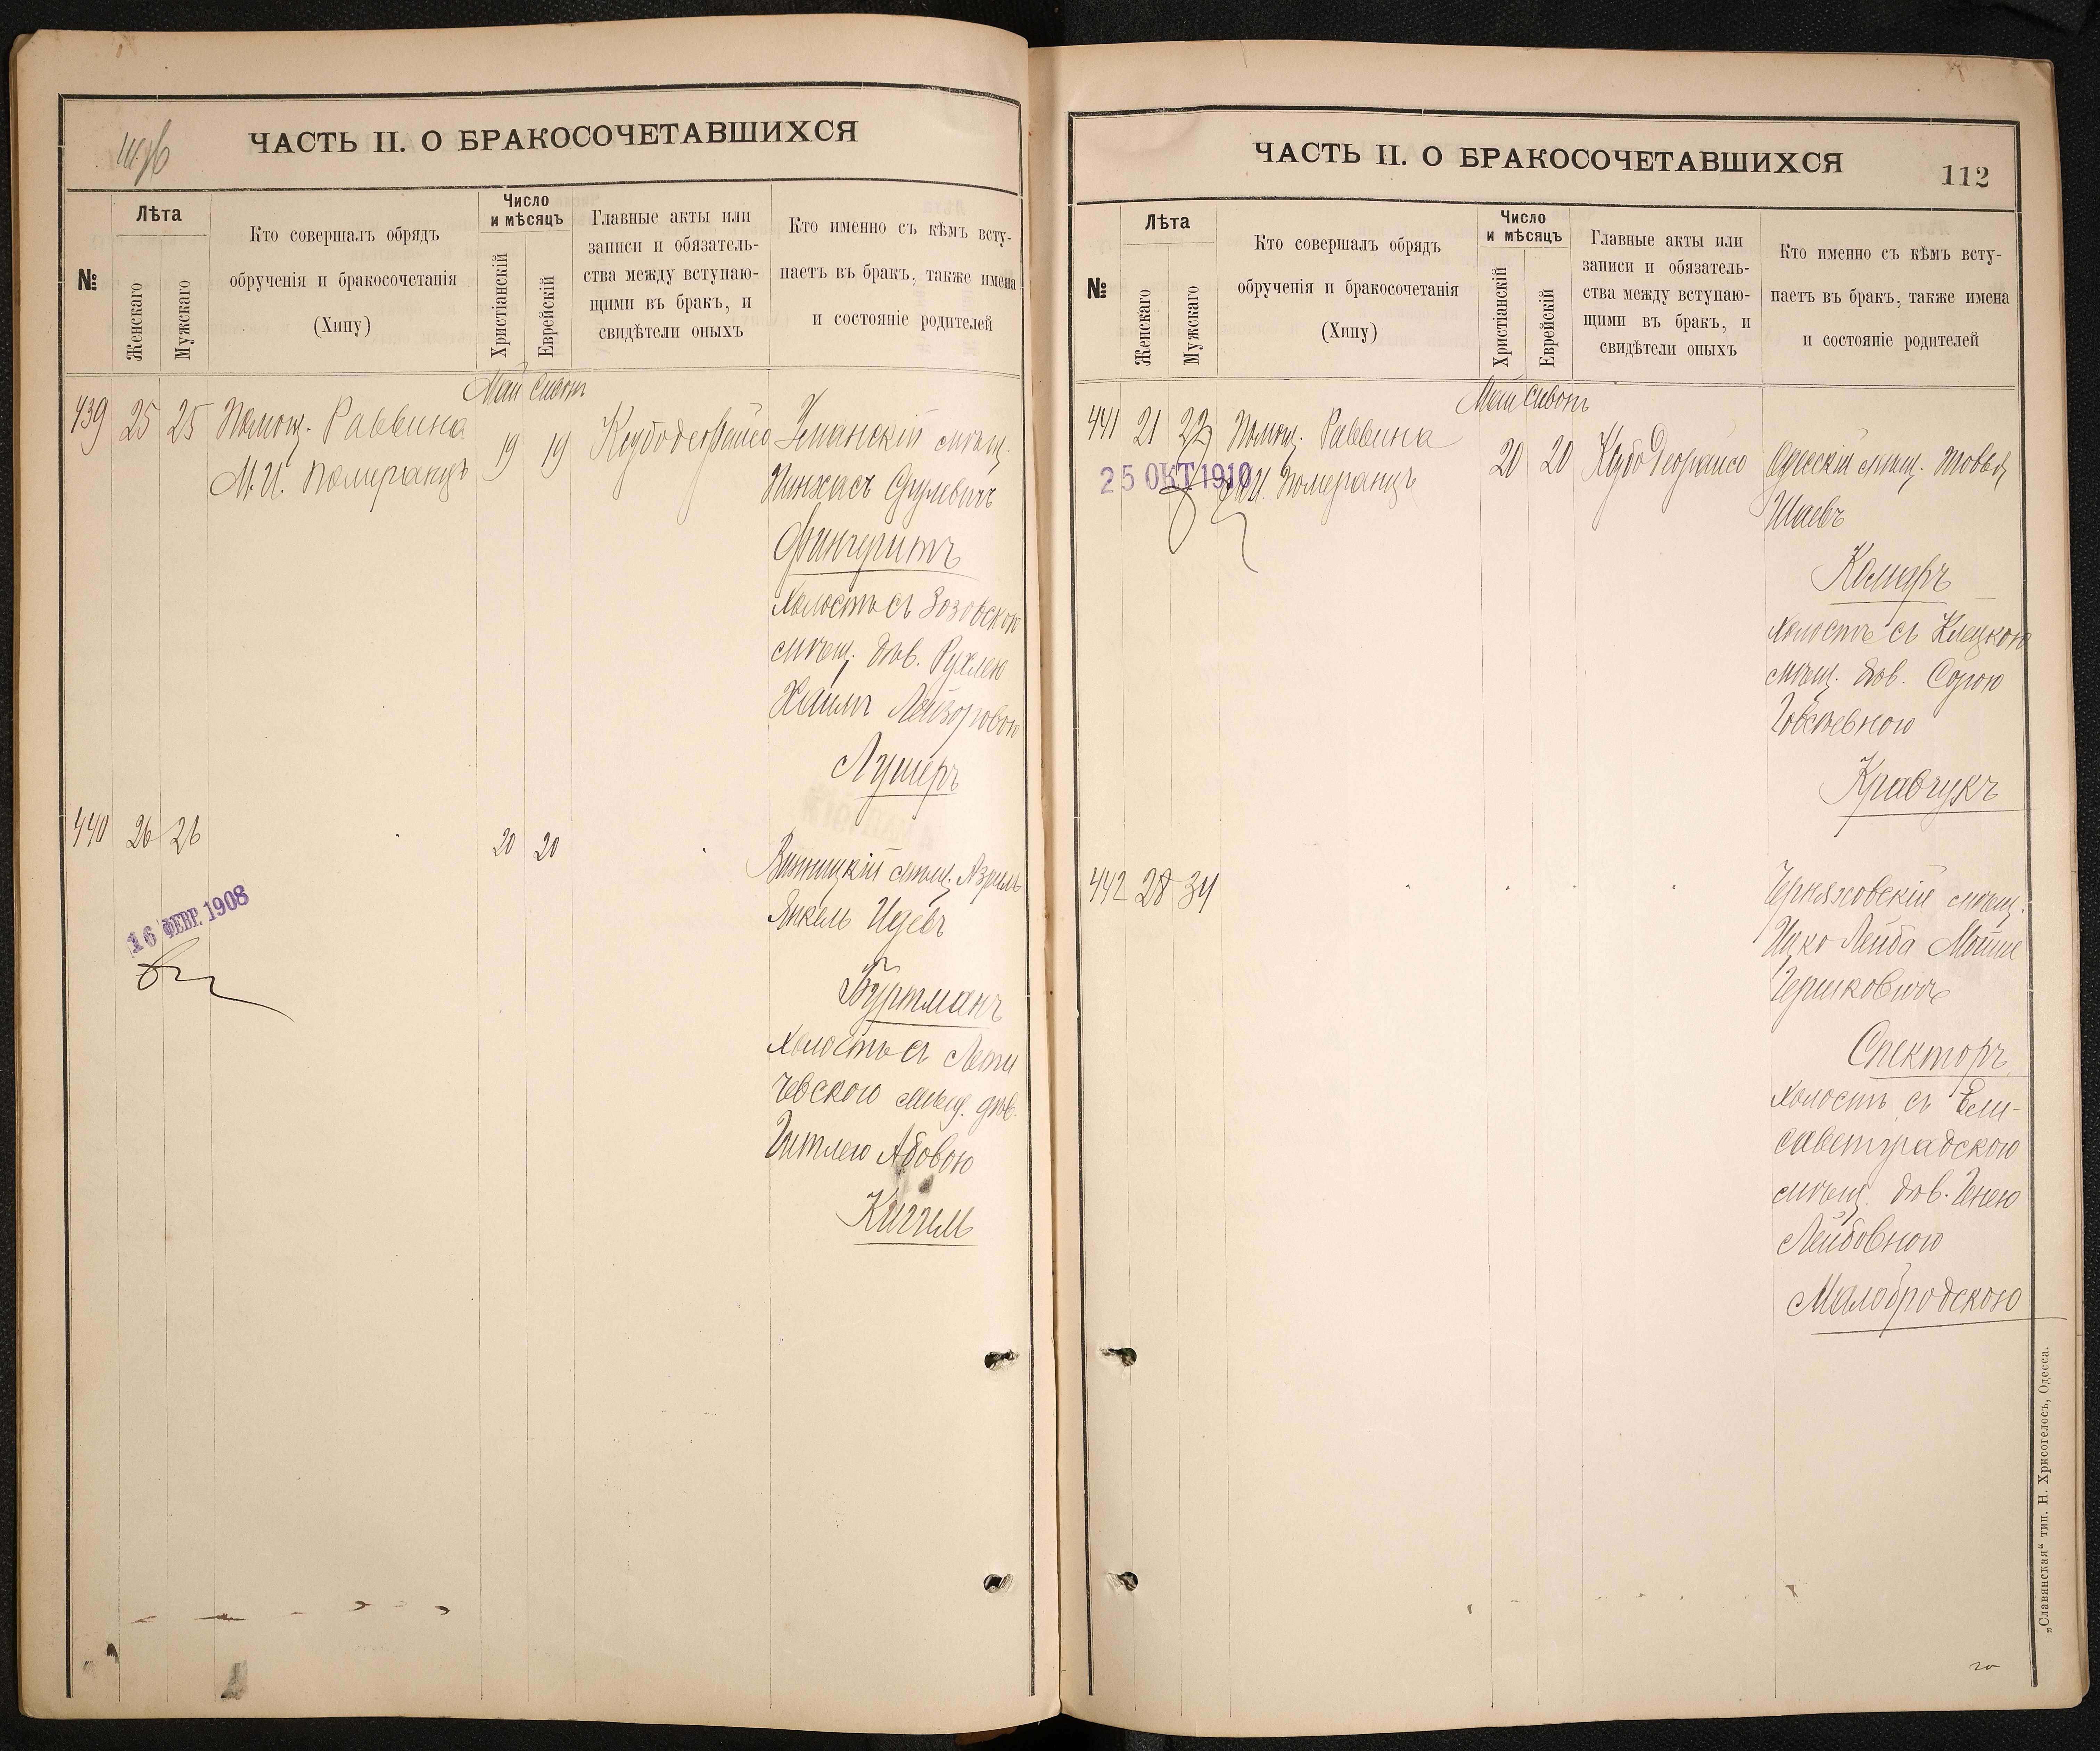 ЧАСТЬ II. О БРАКОСОЧЕТАВШИХСЯ
№
Лѣта
Женскаго
Мужскаго
Кто совершалъ обрядъ
обрученія и бракосочетанія
(Хипу)
Число
и мѣсяцъ
Христіанскій
Еврейскій
Главные акты или
записи и обязатель-
ства между вступаю-
щими въ бракъ, и
свидѣтели оныхъ
Кто именно съ кѣмъ всту-
паетъ въ бракъ, также имена
и состояніе родителей
Май Сивонъ
439 25 25 Помощ. Раввина
М. И. Померанцъ
19 19
Уманскій мѣщ.
Пинхасъ Срулевичъ
Фингеритъ
холостъ съ Зозовскою
мѣщ. дѣв. Рухлею
Лейзоровою
Лушеръ
440 26 26 20 20
Винницкій мѣщ. Азриль
Янкель Идевъ
Буртманъ
холостъ съ Лети
чевскою мѣщ. дѣв.
Гитлею Абовою
Кигель
16 ФЕВР. 1908
ЧАСТЬ II. О БРАКОСОЧЕТАВШИХСЯ
112
№
Лѣта
Женскаго
Мужскаго
Кто совершалъ обрядъ
обрученія и бракосочетанія
(Хипу)
Число
и мѣсяцъ
Христіанскій
Еврейскій
Главные акты или
записи и обязатель-
ства между вступаю-
щими въ бракъ, и
свидѣтели оныхъ
Кто именно съ кѣмъ всту-
паетъ въ бракъ, также имена
и состояніе родителей
Май Сивонъ
441 21 22 Помощ. Раввина
М. И. Померанцъ
25 ОКТ 1910
20 20
Одесскій мѣщ.
Шаевъ
холостъ съ Клецкою
мѣщ. дѣв. Сорою
Кравчукъ
442 28 34
Черняховскій мѣщ.
Ицко Лейба Мошко
Гершковичъ
Спекторъ
холостъ съ Ели-
саветградскою
мѣщ. дѣв. Генею
Лейбовною
Малобродскою
„Славянская“ тип. Н. Хрисогелосъ, Одесса.